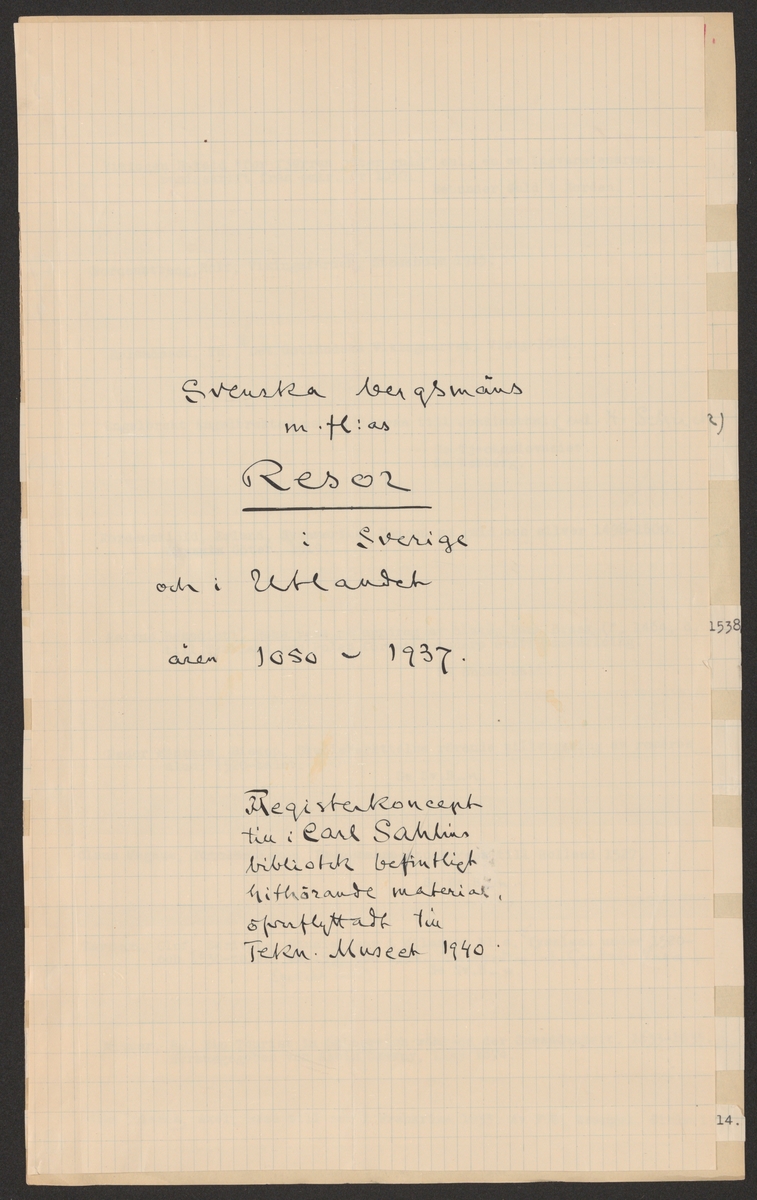 Svenska bergsmäns
m.fl:as
Resor
i Sverige
och i Utlandet
åren 1050 - 1937.
Registerkoncept
till i Carl Sahlins
bibliotek befintligt
hithörande material,
öfverflyttadt till
Tekn. Museet 1940.
2)
1538
14.